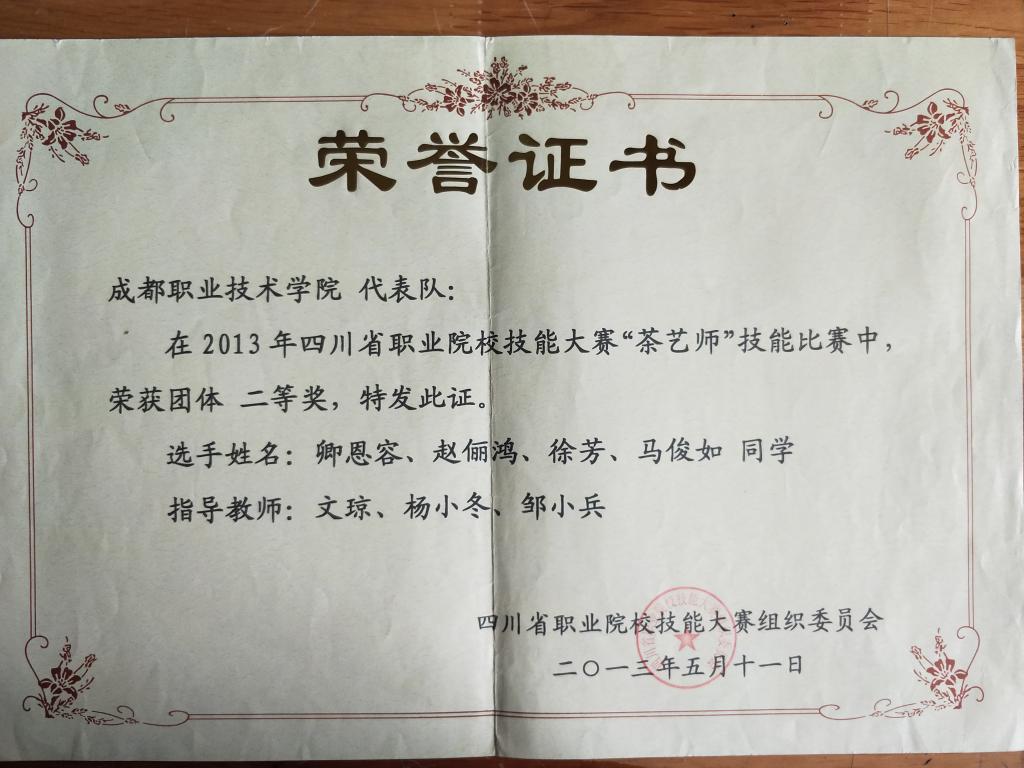 荣誉证书
成都职业技术学院 代表队：
在 2013 年四川省职业院校技能大赛“茶艺师”技能比赛中，
荣获团体 二等奖，特发此证。
选手姓名：卿恩容、赵俪鸿、徐芳、马俊如 同学
指导教师：文琼、杨小冬、邹小兵
四川省职业院校技能大赛组织委员会
二〇一三年五月十一日